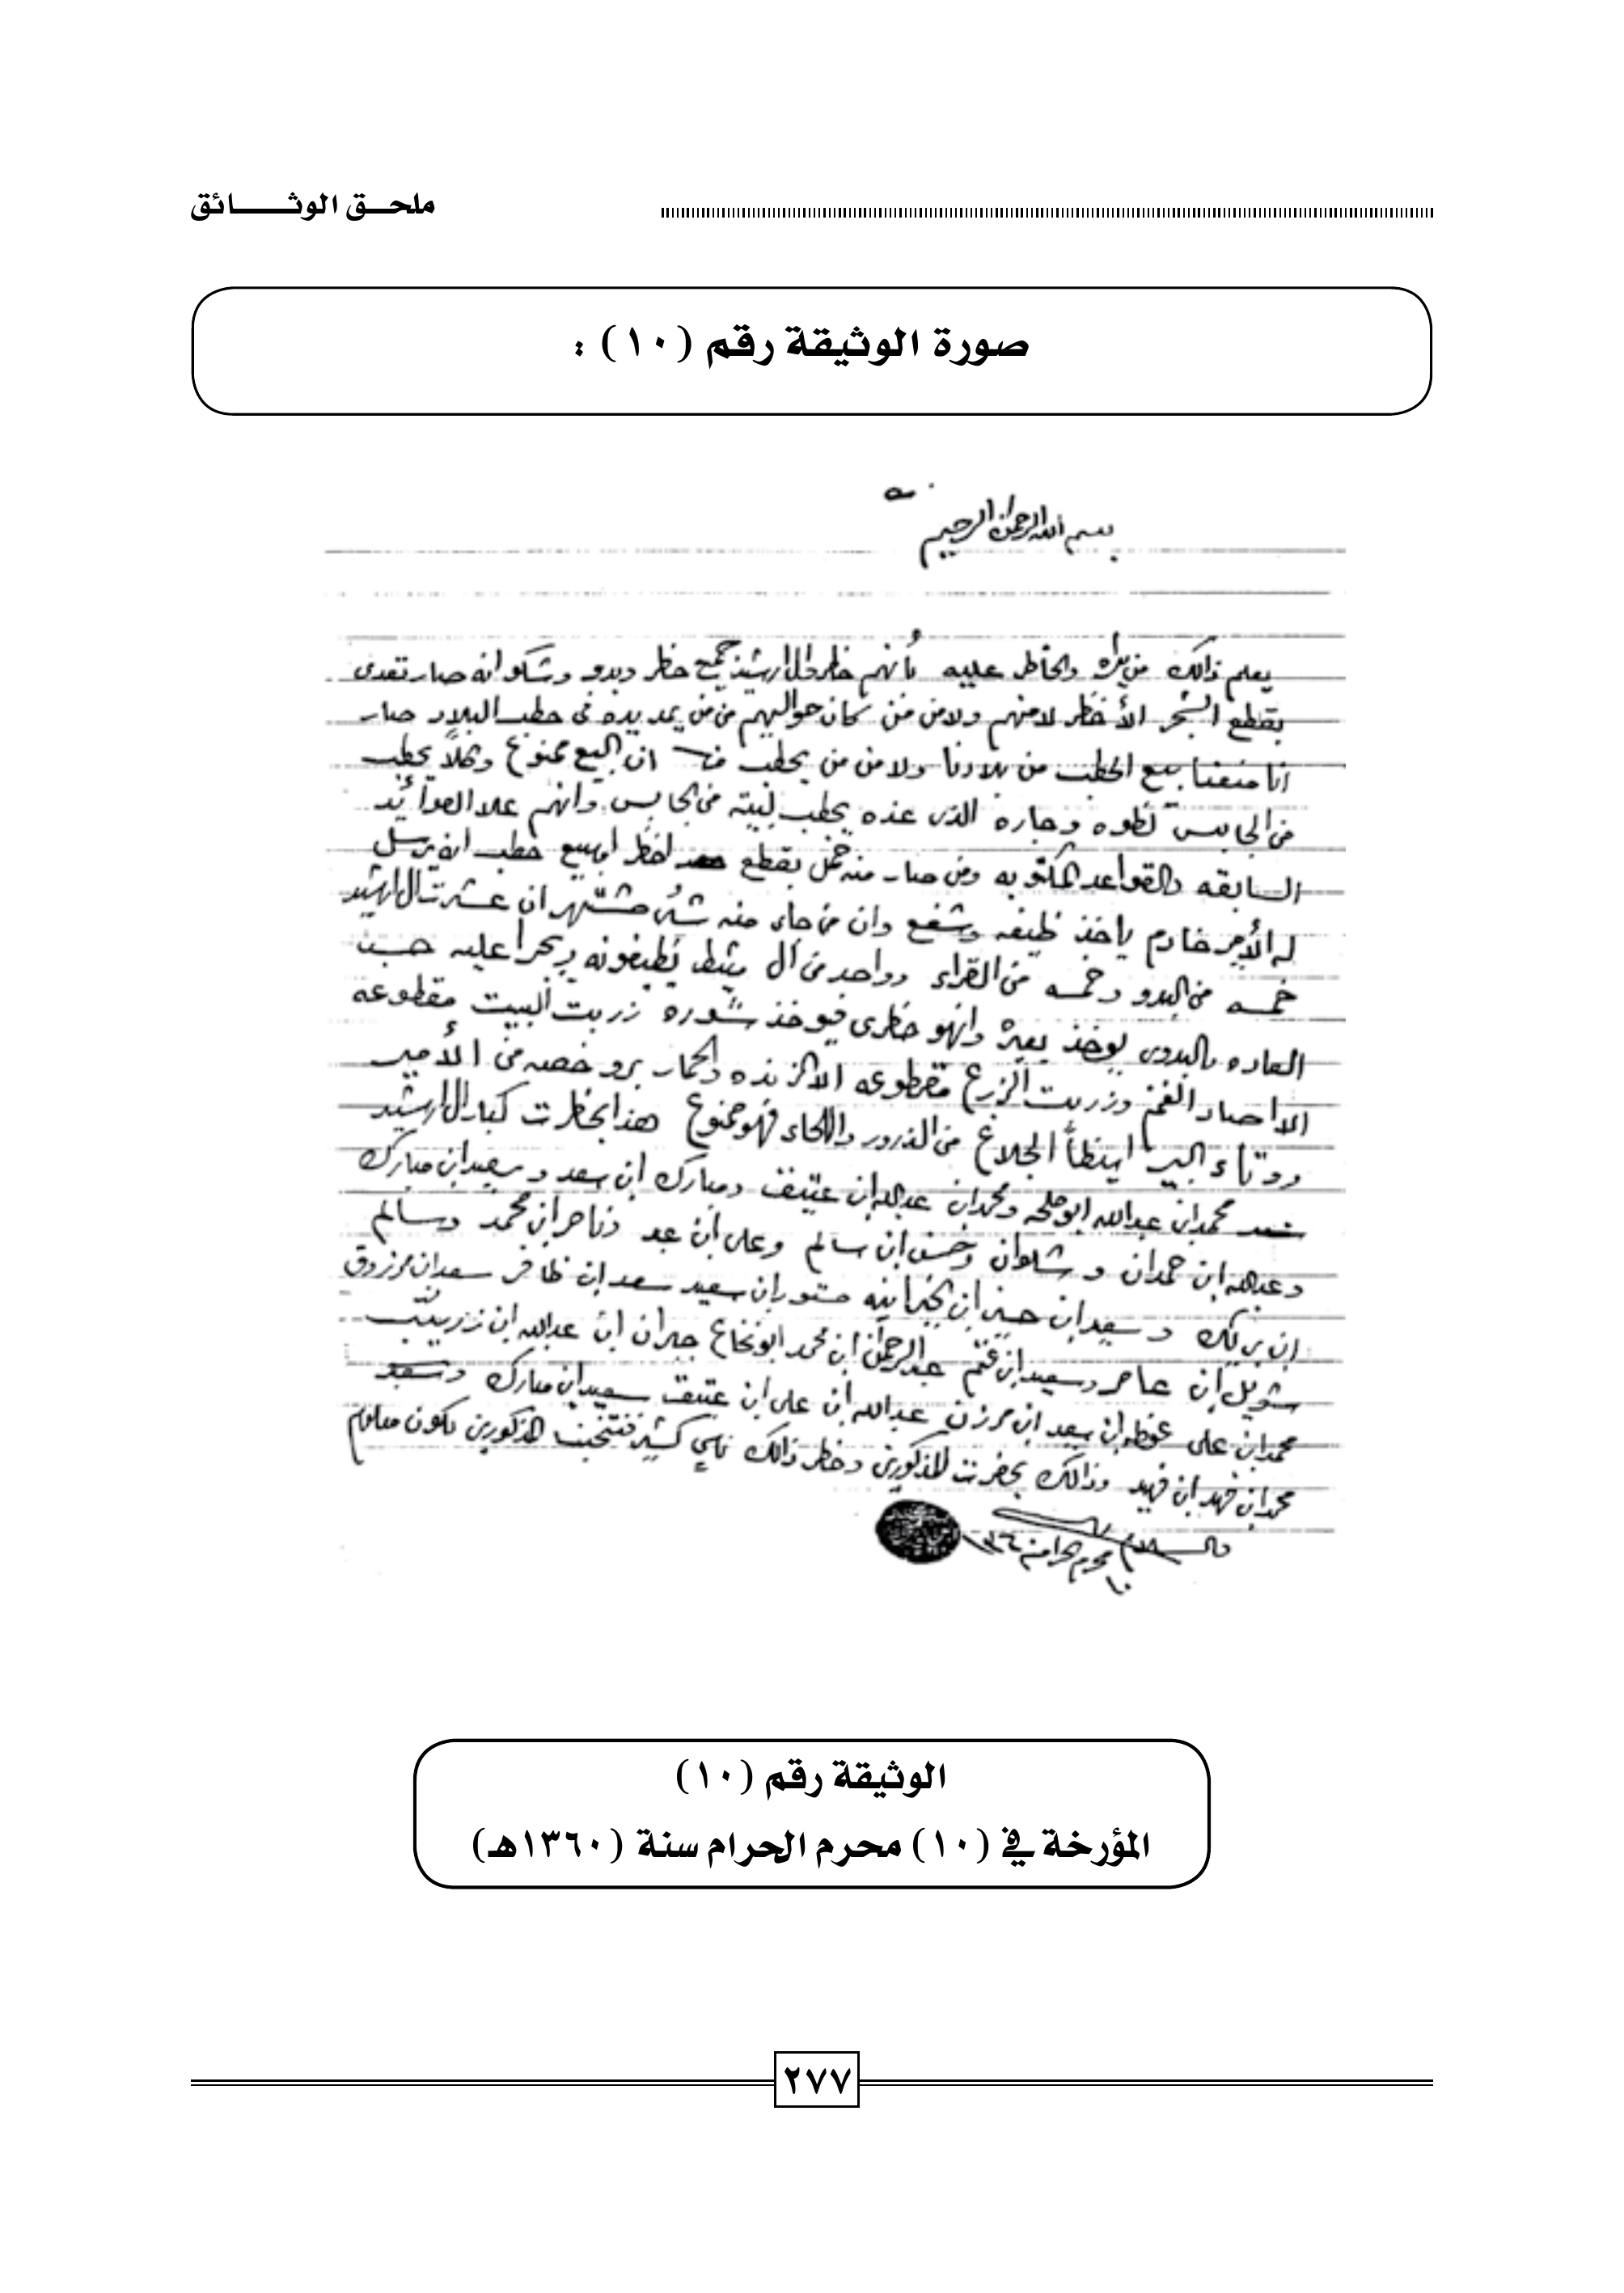 ملحـــق الوثـــــــائق
صورة الوثيقة رقم (١٠) :
بسم الله الرحمن الرحيم
يعلم ذالك من يراه والحاظر عليه بأنهم حظر وال ارشيد جميع حظر وبدو وشكوا انه صار تعدى
بقطع الشجر الأخظر لا منهم ولا من من كان حواليهم من من يمد يده في حطب البلاد صار
انا منعنا بيع الحطب من بلادنا ولا من من يحطب ان البيع ممنوع وكلاً يحطب
من اليابس وجاره الذى عنده يحطب لبيته من اليابس وانهم علا العوائد
السابقه والقواعد المكتوبه ومن صار منه بقطع اخظر او يبيع حطب انه يرسل
له الأمير خادم ياخذ وان من جاء منه شئ ان عشرت ال ارشيد
خمسه من البدو وخمسه من القراء وواحد من آل عليه حسب
العاده بالبدوى يوخذ بعيره وانهو حظرى فيوخذ ثوره زربت البيت مقطوعه
الا حصاد الغنم وزربت الزرع مقطوعه الا والحمار برو خصه من الأمير
ايظاً من الذرور واللحاء فهو ممنوع هذا بحظرت كبار ال ارشيد
محمد ابن عبدالله ابو طلحه ومحمد ابن عبدالله ابن عتيق ومبارك ابن سعد وسعيد ابن مبارك
وعبدالله ابن حمدان و شلوان وحسن ابن سالم وعلى ابن عبد وناصر ابن محمد وسالم
ابن بريك وسعيد ابن حسين ابن مستور ابن سعيد سعد ابن ظافر سعد ابن مرزوق
شويل ابن عامر وسعيد ابن غنم عبدالرحمن ابن محمد ابو نخاع جبران ابن عبدالله ابن
محمد ابن على ابن سعد ابن مرزن عبدالله ابن على ابن عتيق سعيد ابن مبارك وسعيد
محمد ابن فهد ابن فهيد وذالك بحضرت المذكورين وحظر ذالك ناس كثير المذكورين يكون معلوم
والسلام
١٠ محرم الحرام سنه ١٣٦٠
الوثيقة رقم (١٠)
المؤرخة في (١٠) محرم الحرام سنة (١٣٦٠هـ)
٢٧٧